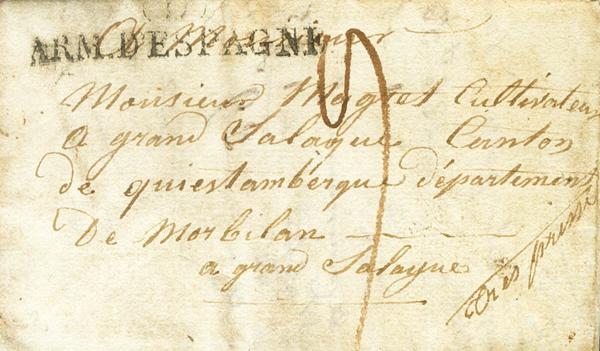 ARM. D'ESPAGNE
A Monsieur
Monsieur Magret Cultivateur
a grand Salague Canton
de quiestambérque département
De Morbilan
a grand Salague
très pressé